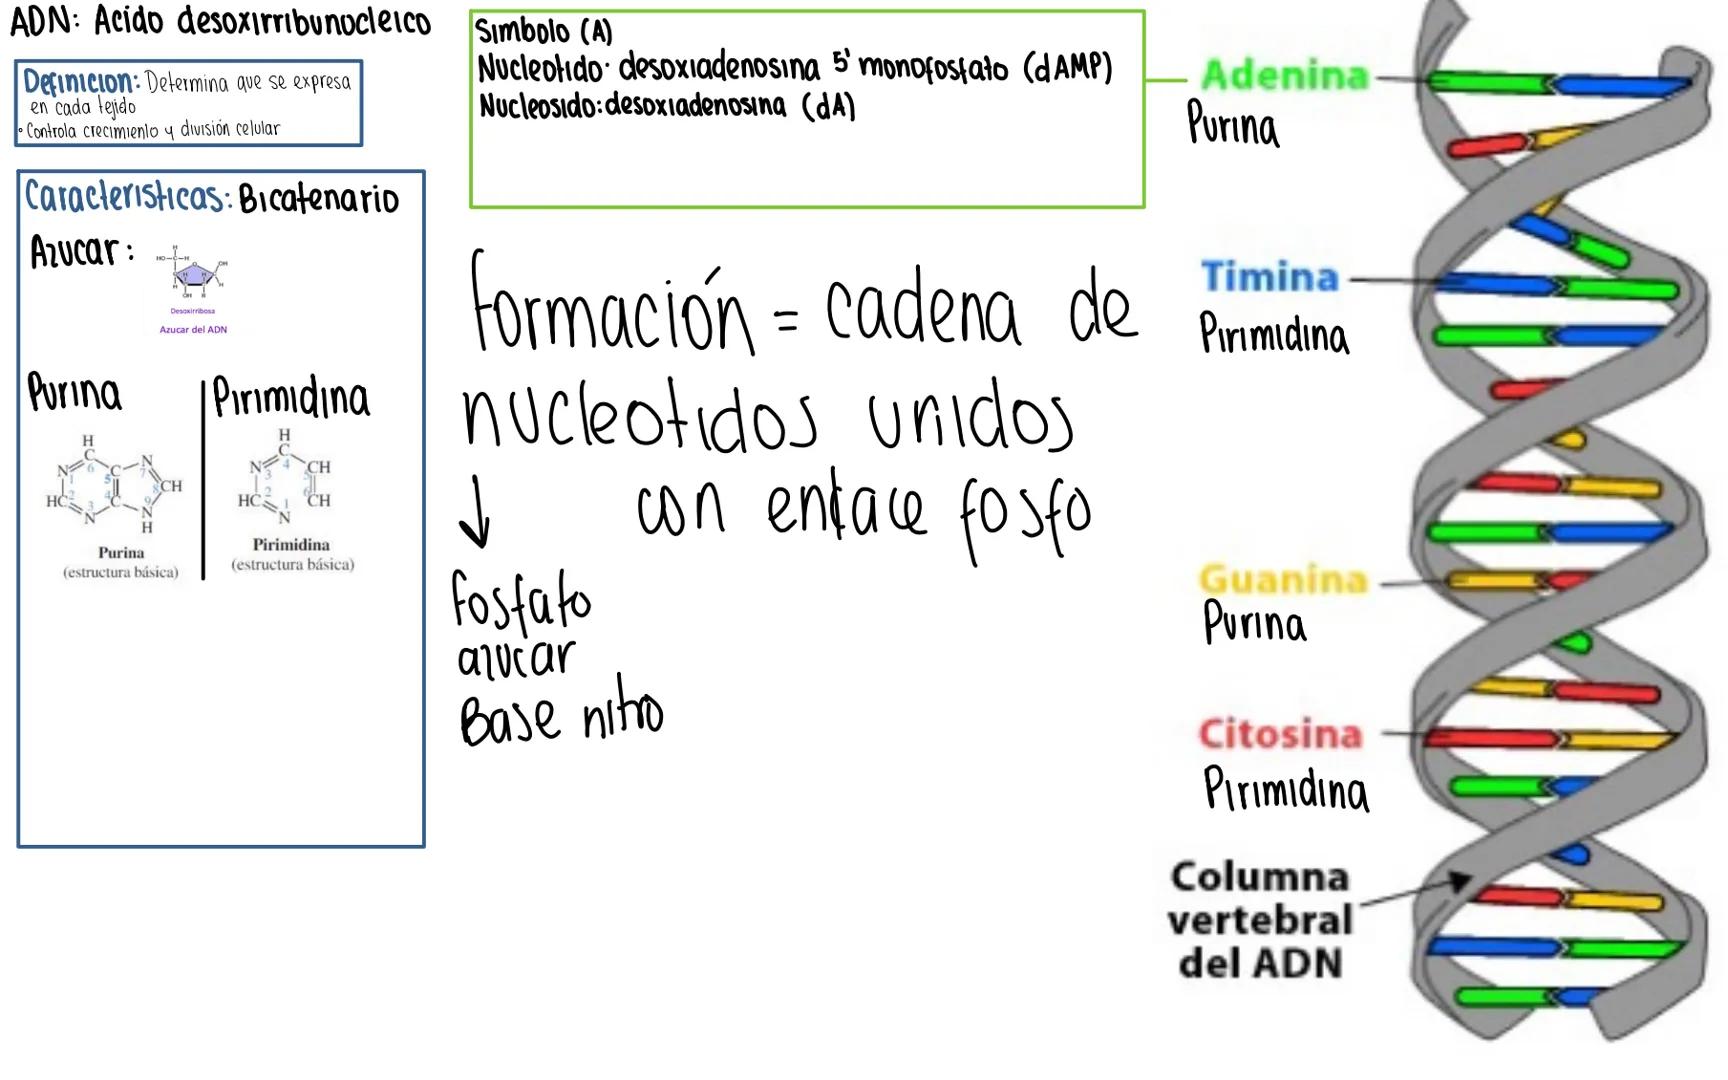 ADN: Acido desoxirribunocleico
Definicion: Determina que se expresa
en cada tejido
• Controla crecimiento y división celular
Caracteristicas: Bicatenario
Azucar:
HO-C-H
H
O
OH
H
OH
H
Desoxirribosa
Azucar del ADN
Purina
Pirimidina
H
C
6
N
1
5
C
N
7
CH
8
HC
2
4
C
9
3
N
N
H
Purina
(estructura básica)
H
C
4
N
3
CH
5
HC
2
6
CH
1
N
Pirimidina
(estructura básica)
Simbolo (A)
Nucleotido: desoxiadenosina 5' monofosfato (dAMP)
Nucleosido: desoxiadenosina (dA)
formación = cadena de
nucleotidos unidos
↓ con enlace fosfo
fosfato
azucar
Base nitro
Adenina
Purina
Timina
Pirimidina
Guanina
Purina
Citosina
Pirimidina
Columna
vertebral
del ADN